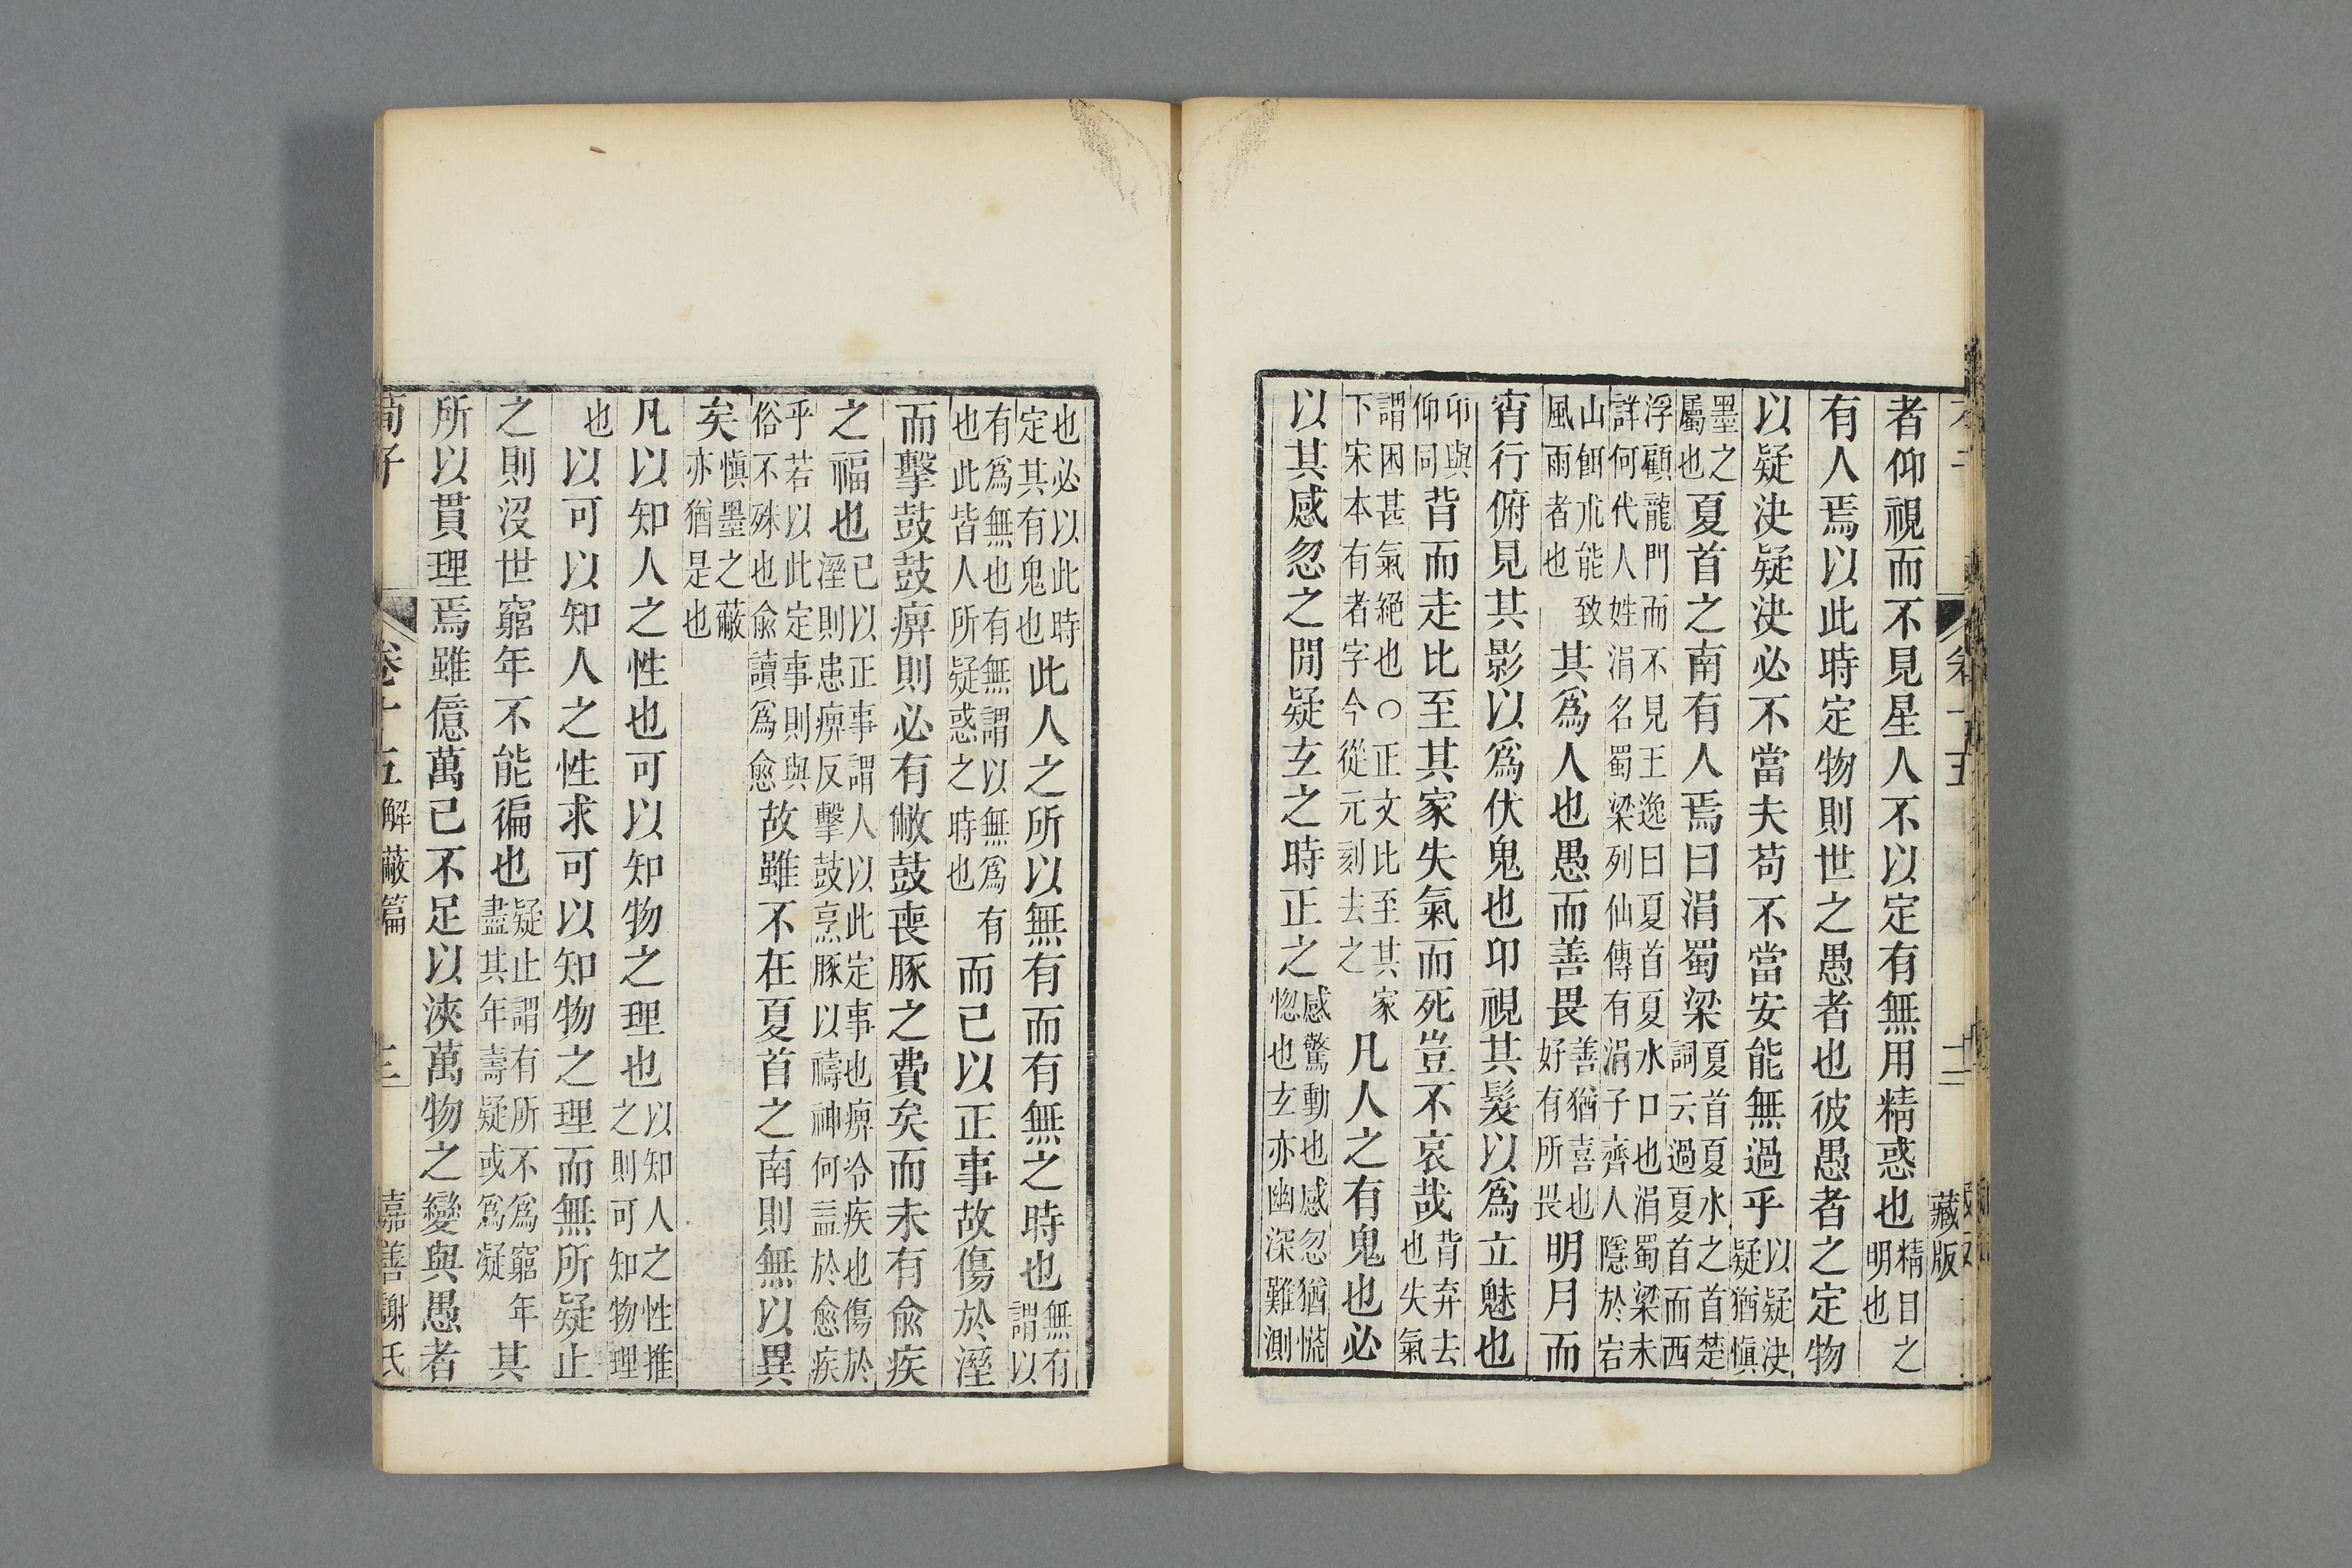 藏版
者仰視而不見星人不以定有無用精惑也精目之明也
有人焉以此時定物則世之愚者也彼愚者之定物
以疑決疑決必不當夫苟不當安能無過乎以疑決疑猶愼
墨之屬也夏首之南有人焉曰涓蜀梁夏首夏水之首楚詞云過夏首而西
浮顧龍門而不見王逸曰夏首夏水口也涓蜀梁未詳何代人姓涓名蜀梁列仙傳有涓子齊人隱於宕
山餌朮能致風雨者也其爲人也愚而善畏善猶喜也好有所畏明月而
宵行俯見其影以爲伏鬼也卬視其髮以爲立魅也
卬與仰同背而走比至其家失氣而死豈不哀哉背弃去也失氣
謂困甚氣絕也○正文比至其家下宋本有者字今從元刻去之凡人之有鬼也必
以其感忽之閒疑玄之時正之感驚動也感忽猶慌惚也玄亦幽深難測
也必以此時定其有鬼也此人之所以無有而有無之時也無有謂以
有爲無也有無謂以無爲有也此皆人所疑惑之時也而己以正事故傷於溼
而擊鼓鼓痹則必有敝鼓喪豚之費矣而未有俞疾
之福也己以正事謂人以此定事也痹冷疾也傷於溼則患痹反擊鼓烹豚以禱神何益於愈疾
乎若以此定事則與俗不殊也俞讀爲愈故雖不在夏首之南則無以異
矣愼墨之蔽亦猶是也
凡以知人之性也可以知物之理也以知人之性推之則可知物理
也以可以知人之性求可以知物之理而無所疑止
之則沒世窮年不能徧也疑止謂有所不爲窮年盡其年壽疑或爲凝其
所以貫理焉雖億萬已不足以浹萬物之變與愚者
荀子 卷十五解蔽篇 三 嘉善謝氏